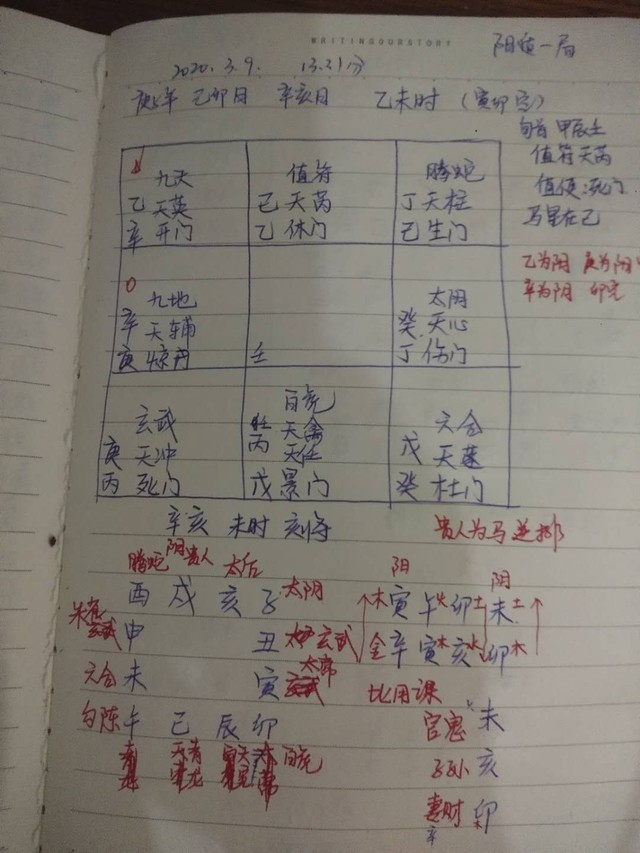 WRITINGOURSTORY
阳遁一局
2020.3.9. 13.21分
庚子年 己卯月 辛亥日 乙未时 (寅卯空)
旬首 甲辰壬
值符天芮
值使:死门
马星在巳
乙为阴 庚为阳
辛为阴 卯
九天 值符 腾蛇
乙 天英 己 天芮 丁 天柱
辛 开门 乙 休门 己 生门
九地 太阴
辛 天辅 癸 天心
庚 惊门 壬 丁 伤门
玄武 白虎 六合
庚 天冲 壬 天禽 戊 天蓬
丙 天任
丙 死门 戊 景门 癸 杜门
辛亥 未时 亥将
贵人为马逆排
腾蛇 阴贵人 太后 阳 阴
酉 戌 亥 子 太阴 木寅 午火 卯土 未土
朱雀 申 丑 玄武 金辛 寅木 亥水 卯木
六合 未 寅 太常 比用课
勾陈 午 巳 辰 卯 官鬼 未
青龙 天空 白虎 子孙 亥
妻财 卯
辛